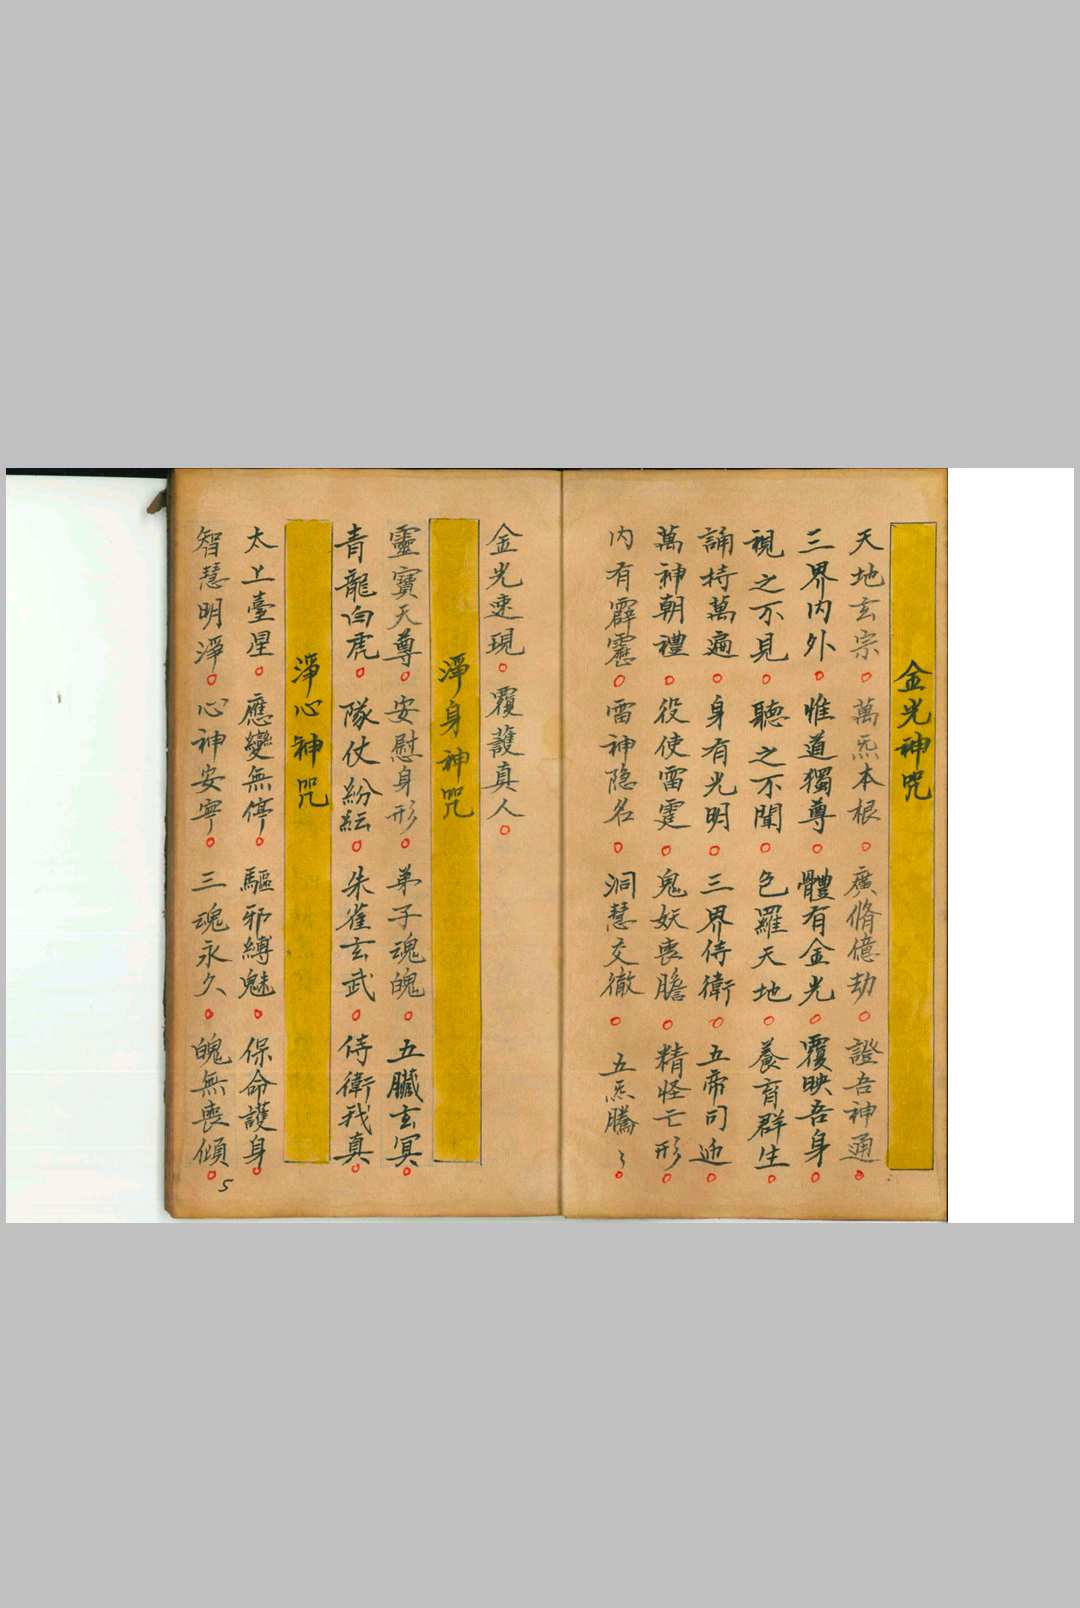 金光神咒
天地玄宗○萬炁本根○廣脩億劫○證吾神通○
三界内外○惟道獨尊○體有金光○覆映吾身○
視之不見○聽之不聞○色羅天地○養育群生○
誦持萬遍○身有光明○三界侍衛○五帝司迊○
萬神朝禮○役使雷霆○鬼妖喪膽○精怪亡形○
内有霹靂○雷神隐名○洞慧交徹○五炁騰〻○
金光速現○覆護真人○
淨身神咒
靈寶天尊○安慰身形○弟子魂魄○五臟玄冥○
青龍白虎○隊仗紛紜○朱雀玄武○侍衛我真○
淨心神咒
太上臺星○應變無停○驅邪縛魅○保命護身○
智慧明淨○心神安寧○三魂永久○魄無喪傾○
5